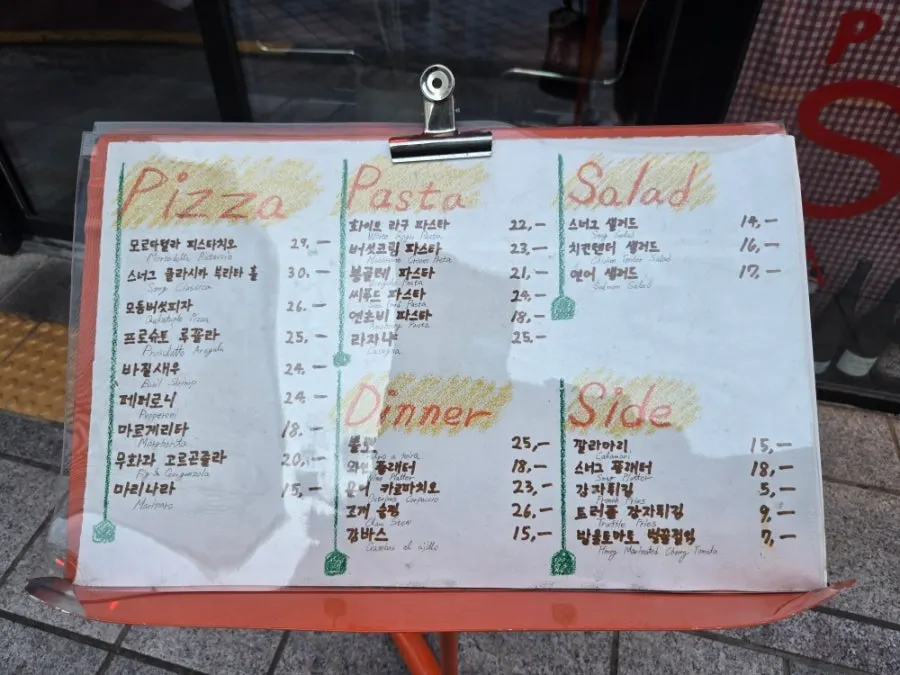 Pizza
모르타델라 피스타치오 29,-
Mortadella Pistaccio
스너그 클라시카 부라타 홀 30.-
Snug Classica
모둠버섯피자 26.-
Pizza
프로슈토 루꼴라 25,-
Prosciutto Arugula
바질새우 24.-
Basil Shrimp
페퍼로니 24-
Pepperoni
마르게리타 18.-
Margherita
무화과 고르곤졸라 20,-
Fig & Gorgonzola
마리나라 15,-
Marinara
Pasta
화이트 라구 파스타 22,-
White Ragu Pasta
버섯크림 파스타 23,-
Mushroom Cream Pasta
봉골레 파스타 21,-
Vongole Pasta
씨푸드 파스타 24,-
Seafood Pasta
연초비 파스타 18,-
Pasta
라자냐 25,-
Lasagna
Dinner
25,-
와인 플래터 18,-
Wine Platter
문어 카르파치오 23,-
Carpaccio
조개 술찜 26,-
Clam Stew
감바스 15,-
Gambas al ajillo
Salad
스너그 샐러드 14,-
Snug Salad
치킨텐더 샐러드 16,-
Chicken Tender Salad
연어 샐러드 17,-
Salmon Salad
Side
깔라마리 15,-
Calamari
스너그 플래터 18,-
Snug Platter
감자튀김 5,-
French Fries
트러플 감자튀김 9,-
Truffle Fries
방울토마토 벌꿀절임 7,-
Honey Marinated Cherry Tomato
P
S